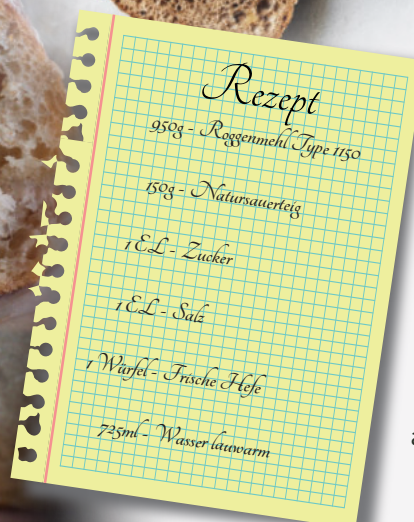 Rezept
950g - Roggenmehl Type 1150
150g - Natursauerteig
1 EL - Zucker
1 EL - Salz
1 Würfel - Frische Hefe
725ml - Wasser lauwarm